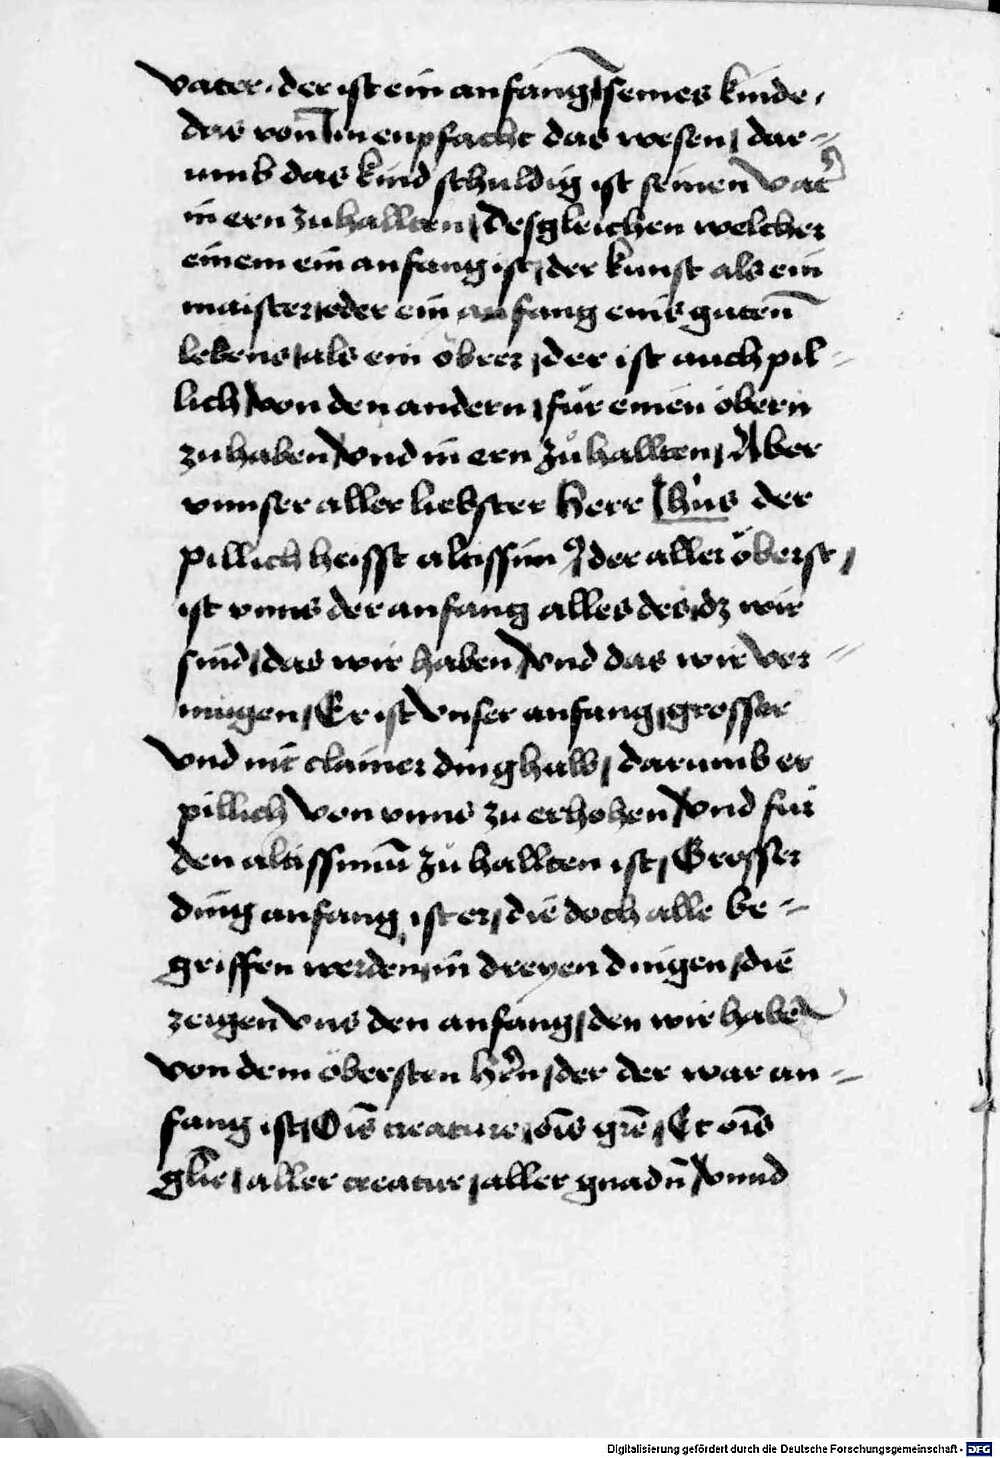 vater · der ist ein anfang / seines kinds /
das von im enpfacht das wesen / dar=
umb das kind schuldig ist seinen vater
in ern zu hallten / desgleichen welcher
einem ein anfang ist / der kunst als ein
maister / oder ein anfang eins guten
lebens / als ein öbrer / der ist auch pil=
lich / von den andern / für einen öbern
zu haben / vnd in ern zů hallten / Aber
vnnser aller liebster herr Jhüs der
pillich heisst altissimus / der aller öberst /
ist vnns der anfang alles des / dz wir
sind / das wir haben / vnd das wir ver=
mügen / Er ist vnser anfang / grosser
vnd nit clainer ding halb / darumb er
pillich von vnns zu erhohen / vnd für
den altissimū zů hallten ist / Grosser
ding anfang ist er / die doch alle be=
griffen werden / in dreyen dingen / die
zeigen vns den anfang / den wir haben
von dem öbersten hern / der der war an=
fang ist / Oīs creature / oīs grē / Et oīs
glīe / aller creatur / aller gnadn̄ / vnnd
Digitalisierung gefördert durch die Deutsche Forschungsgemeinschaft - DFG